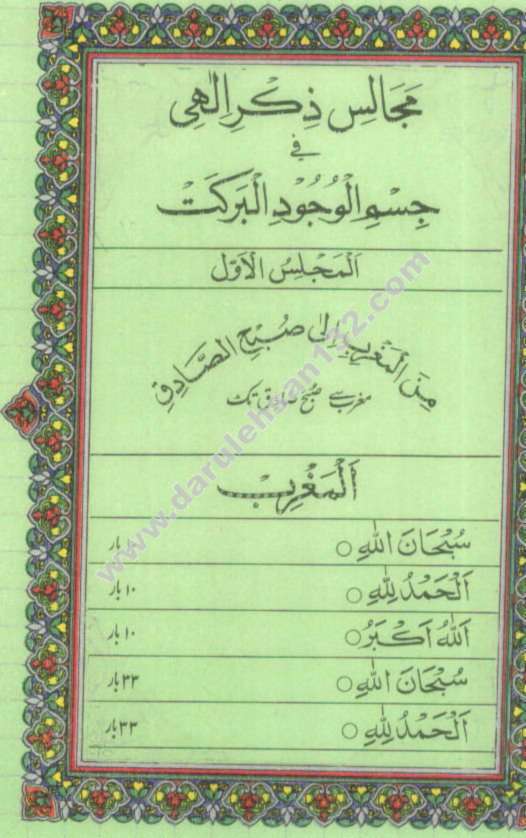 مَجَالِسِ ذِكْرِ اِلٰهِی
فِے
جِسْمِ الْوُجُوْدِ الْبَرَكَتْ
اَلْمَجْلِسُ الْاَوَّلُ
مِنَ الْمَغْرِبِ اِلٰی صُبْحِ الصَّادِقِ
مغرب سے صُبح صادق تک
اَلْمَغْرِب
سُبْحَانَ اللّٰهِ ○ بار
اَلْحَمْدُ لِلّٰهِ ○ ۱۰ بار
اَللّٰهُ اَكْبَرُ ○ ۱۰ بار
سُبْحَانَ اللّٰهِ ○ ۳۳ بار
اَلْحَمْدُ لِلّٰهِ ○ ۳۳ بار
www.darulehsan132.com